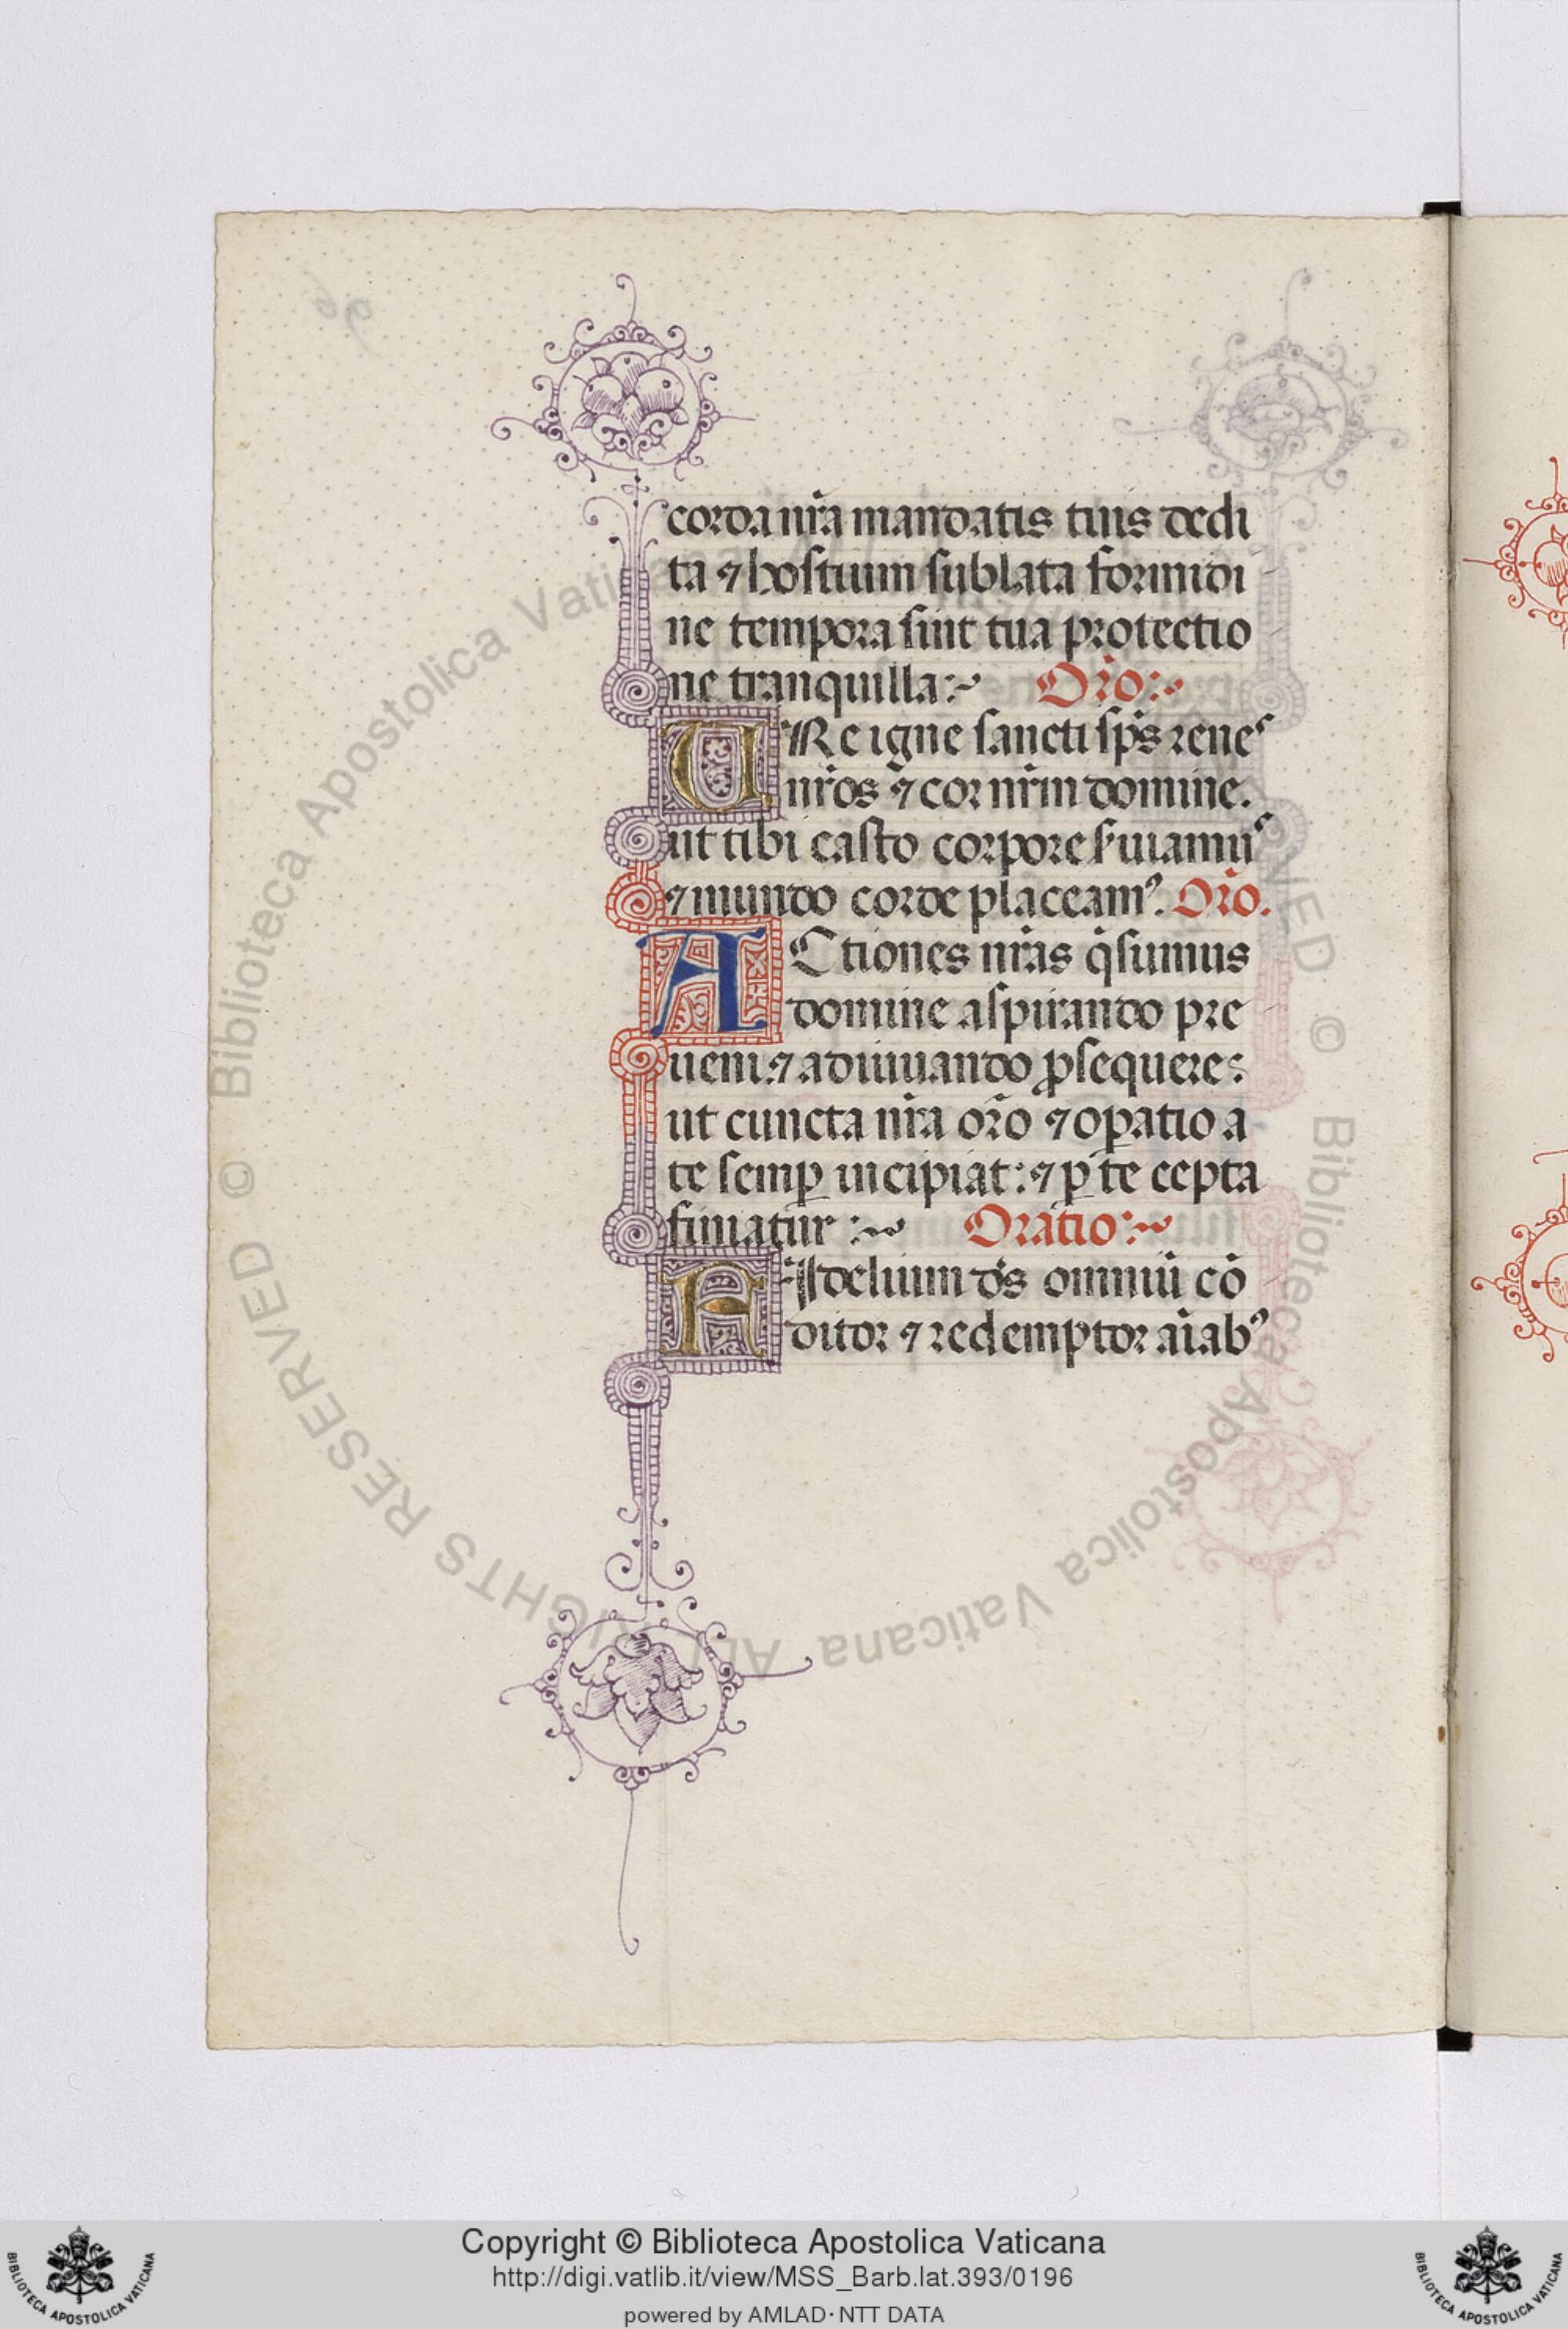 corda nr̃a mandatis tuis dedi
ta ⁊ hostium sublata formidi
ne tempora sint tua protectio
ne tranquilla:~ Or̃o:~
URe igne sancti sp̃s rene
nr̃os ⁊ cor nr̃m domine.
ut tibi casto corpore ẜuiamuˢ
⁊ mundo corde placeamꝰ. Or̃o.
ACtiones nr̃as q̃sumus
domine aspirando pre
ueni: ⁊ adiuuando ꝓsequere:
ut cuncta nr̃a or̃o ⁊ oꝑatio a
te semꝑ incipiat: ⁊ ꝑ te cepta
finiatur :~ Oratio:~
FIdelium ds̃ omniũ cõ
ditor ⁊ redemptor aĩabꝰ
© Biblioteca Apostolica Vaticana ALL RIGHTS RESERVED
© Biblioteca Apostolica Vaticana
Copyright © Biblioteca Apostolica Vaticana
http://digi.vatlib.it/view/MSS_Barb.lat.393/0196
powered by AMLAD · NTT DATA
BIBLIOTECA APOSTOLICA VATICANA
BIBLIOTECA APOSTOLICA VATICANA